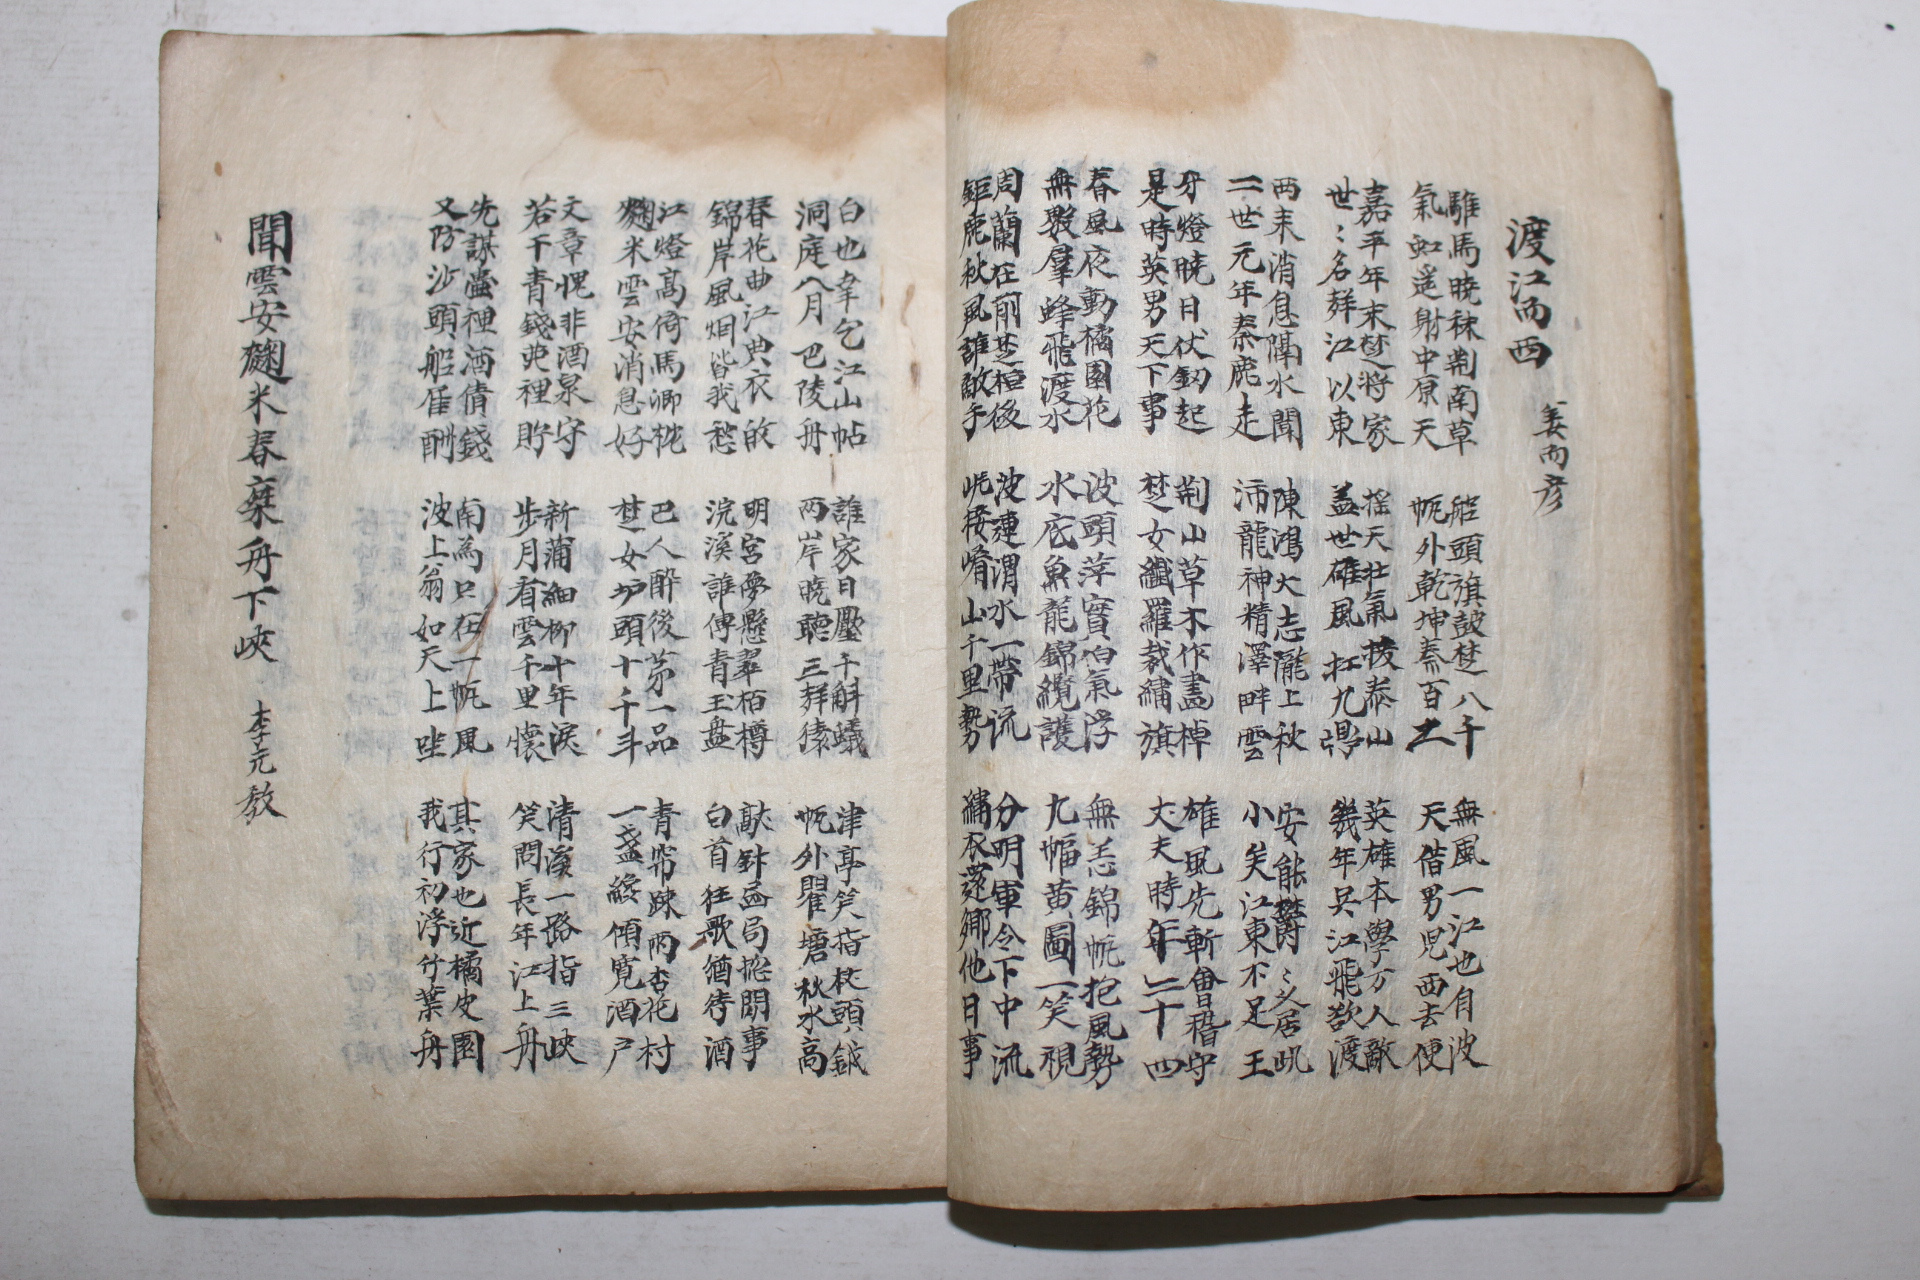 渡江而西
姜雨彦
騅馬曉秣荊南草
氣虹遙射中原天
船頭旗皷楚八千
帆外乾坤秦百二
無風一江也自波
天借男児西去便
嘉平年末楚將家
世〻名聲江以東
搖天壯氣拔泰山
盖世雄風扛九鼎
英雄本學万人敵
幾年呉江飛欲渡
兩末消息隔水聞
二世元年秦鹿走
陳鴻大志隴上秋
沛龍神精澤畔雲
安能欝〻久居此
小矣江東不足王
牙燈曉日伏釼起
是時英男天下事
荊山草木作畵棹
楚女纖羅裁繡旗
雄風先斬會稽守
丈夫時年二十四
春風夜動橘園花
無數羣蜂飛渡水
波頭萍實伯氣浮
水底魚龍錦纜護
無恙錦帆抱風勢
九幅黄圖一笑視
周蘭在前楚桓後
鉅鹿秋風誰敵手
波連渭水一帶流
山千里勢
分明軍令下中流
繡衣還鄕他日事
白也幸乞江山帖
洞庭八月巴陵舟
誰家日壓千斛蟻
兩岸曉聽三聲猿
津亭笑指杖頭鉞
帆外瞿塘秋水高
春花曲江典衣的
錦岸風烟皆我愁
明宮夢懸翠栢樽
浣溪誰傳青玉盤
敲針畵局捴閒事
白首狂歌猶待酒
江燈高倚馬卿枕
麴米雲安消息好
巴人醉後第一品
楚女垆頭十千斗
青帘踈雨杏花村
一盞纔傾寛酒户
文章愧非酒泉守
若干青錢葩裡貯
新蒲細柳十年淚
步月看雲千里懷
清溪一路指三峽
笑問長年江上舟
先謀壺裡酒債錢
又防沙頭船雇酬
南為只在一帆風
波上翁如天上坐
其家也近橘皮園
我行初浮竹葉舟
聞雲安麹米春棄舟下峽
李元敎